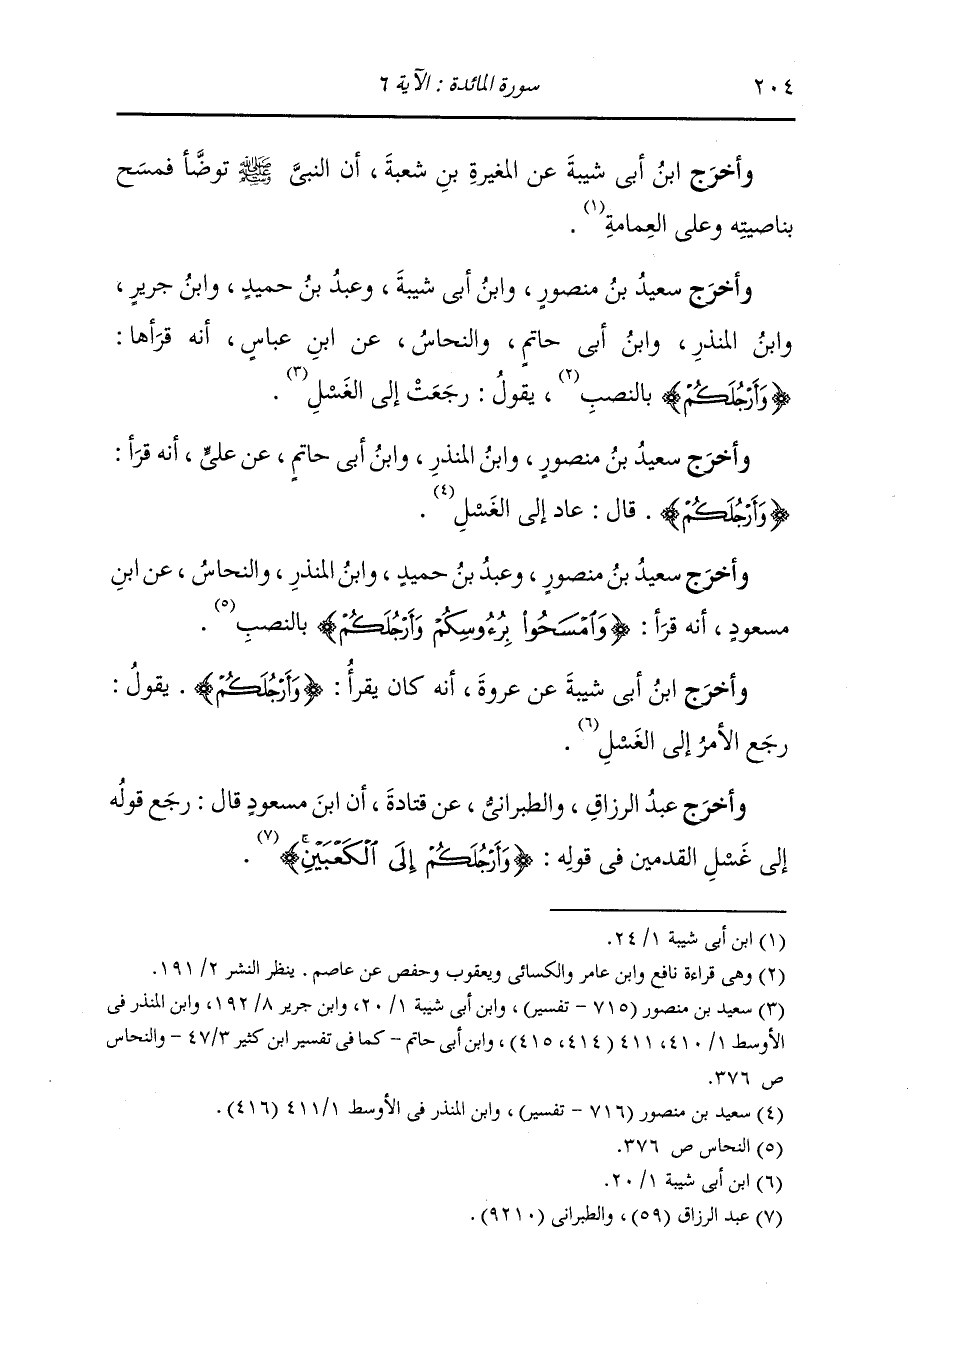 ٢٠٤ سورة المائدة : الآية ٦
وأخرَج ابنُ أبى شيبةَ عن المغيرةِ بنِ شعبةَ ، أن النبىَّ ﷺ توضَّأ فمسَح
بناصيتِه وعلى العِمامةِ(١) .
وأخرَج سعيدُ بنُ منصورٍ ، وابنُ أبى شيبةَ ، وعبدُ بنُ حميدٍ ، وابنُ جريرٍ ،
وابنُ المنذرِ ، وابنُ أبى حاتمٍ ، والنحاسُ ، عن ابنِ عباسٍ ، أنه قرَأها :
﴿وَأَرْجُلَكُمْ﴾ بالنصبِ(٢) ، يقولُ : رجَعَتْ إلى الغَسْلِ(٣) .
وأخرَج سعيدُ بنُ منصورٍ ، وابنُ المنذرِ ، وابنُ أبى حاتمٍ ، عن علىٍّ ، أنه قرَأ :
﴿وَأَرْجُلَكُمْ﴾ . قال : عاد إلى الغَسْلِ(٤) .
وأخرَج سعيدُ بنُ منصورٍ ، وعبدُ بنُ حميدٍ ، وابنُ المنذرِ ، والنحاسُ ، عن ابنِ
مسعودٍ ، أنه قرَأ : ﴿وَٱمْسَحُوا۟ بِرُءُوسِكُمْ وَأَرْجُلَكُمْ﴾ بالنصبِ(٥) .
وأخرَج ابنُ أبى شيبةَ عن عروةَ ، أنه كان يقرأُ : ﴿وَأَرْجُلَكُمْ﴾ . يقولُ :
رجَع الأمرُ إلى الغَسْلِ(٦) .
وأخرَج عبدُ الرزاقِ ، والطبرانىُّ ، عن قتادةَ ، أن ابنَ مسعودٍ قال : رجَع قولُه
إلى غَسْلِ القدمين فى قولِه : ﴿وَأَرْجُلَكُمْ إِلَى ٱلْكَعْبَيْنِۚ﴾(٧) .
(١) ابن أبى شيبة ١/ ٢٤.
(٢) وهى قراءة نافع وابن عامر والكسائى ويعقوب وحفص عن عاصم . ينظر النشر ٢/ ١٩١.
(٣) سعيد بن منصور (٧١٥ - تفسير) ، وابن أبى شيبة ١/ ٢٠، وابن جرير ٨/ ١٩٢، وابن المنذر فى
الأوسط ١/ ٤١٠، ٤١١ (٤١٤، ٤١٥) ، وابن أبى حاتم - كما فى تفسير ابن كثير ٤٧/٣ - والنحاس
ص ٣٧٦.
(٤) سعيد بن منصور (٧١٦ - تفسير) ، وابن المنذر فى الأوسط ٤١١/١ (٤١٦) .
(٥) النحاس ص ٣٧٦.
(٦) ابن أبى شيبة ١/ ٢٠.
(٧) عبد الرزاق (٥٩) ، والطبرانى (٩٢١٠) .